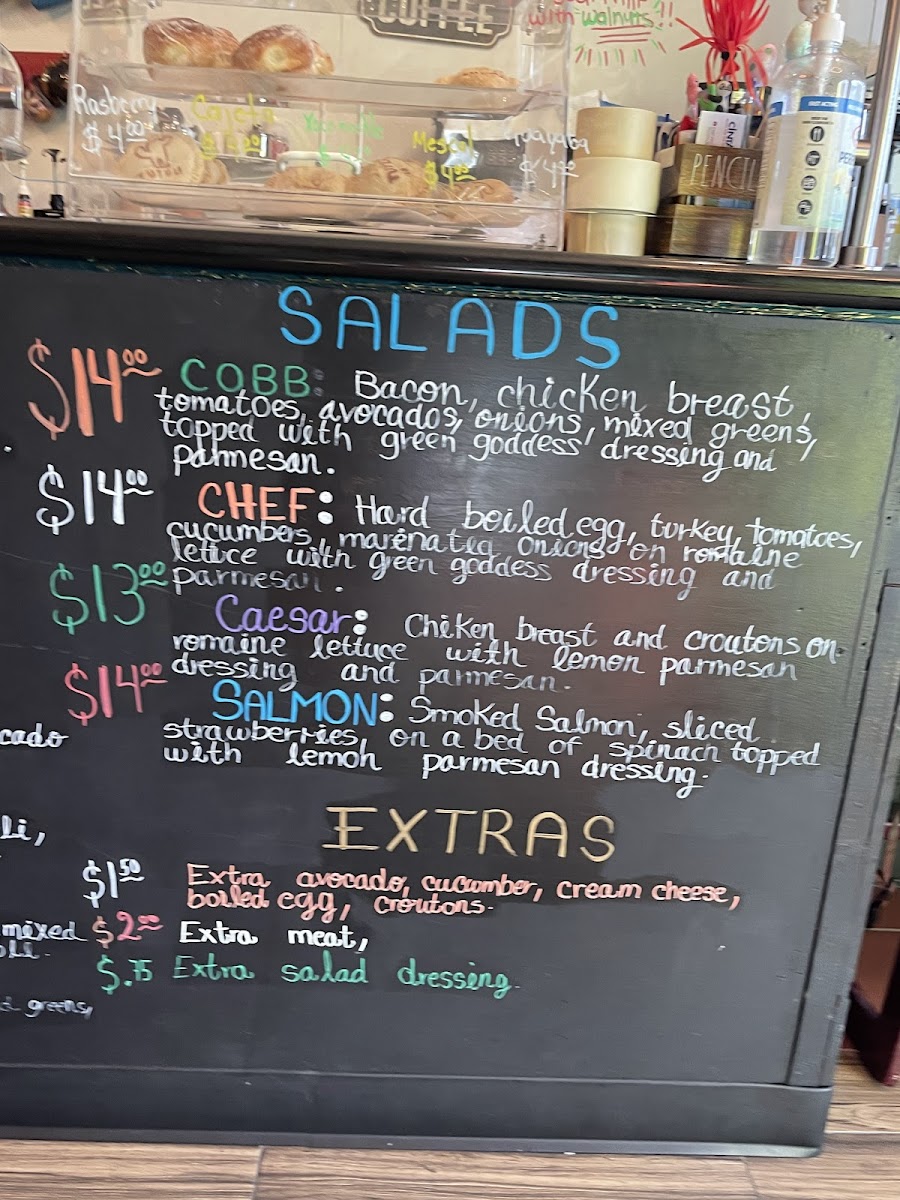 COFFEE
with walnuts!!
Rasberry
$4.00
Cajeta
$4.00
Mescal
$4.00
FAST ACTING
PENCIL
SALADS
$14.00 COBB: Bacon, chicken breast,
tomatoes, avocados, onions, mixed greens,
topped with green goddess dressing and
parmesan.
$14.00 CHEF: Hard boiled egg, turkey, tomatoes,
cucumbers, marinated onions on romaine
lettuce with green goddess dressing and
parmesan.
$13.00 Caesar: Chiken breast and croutons on
romaine lettuce with lemon parmesan
dressing and parmesan.
$14.00 SALMON: Smoked Salmon, sliced
strawberries, on a bed of spinach topped
with lemon parmesan dressing.
cado
li,
mixed
greens,
EXTRAS
$1.50 Extra avocado, cucumber, cream cheese,
boiled egg, croutons.
$2.00 Extra meat,
$.75 Extra salad dressing.